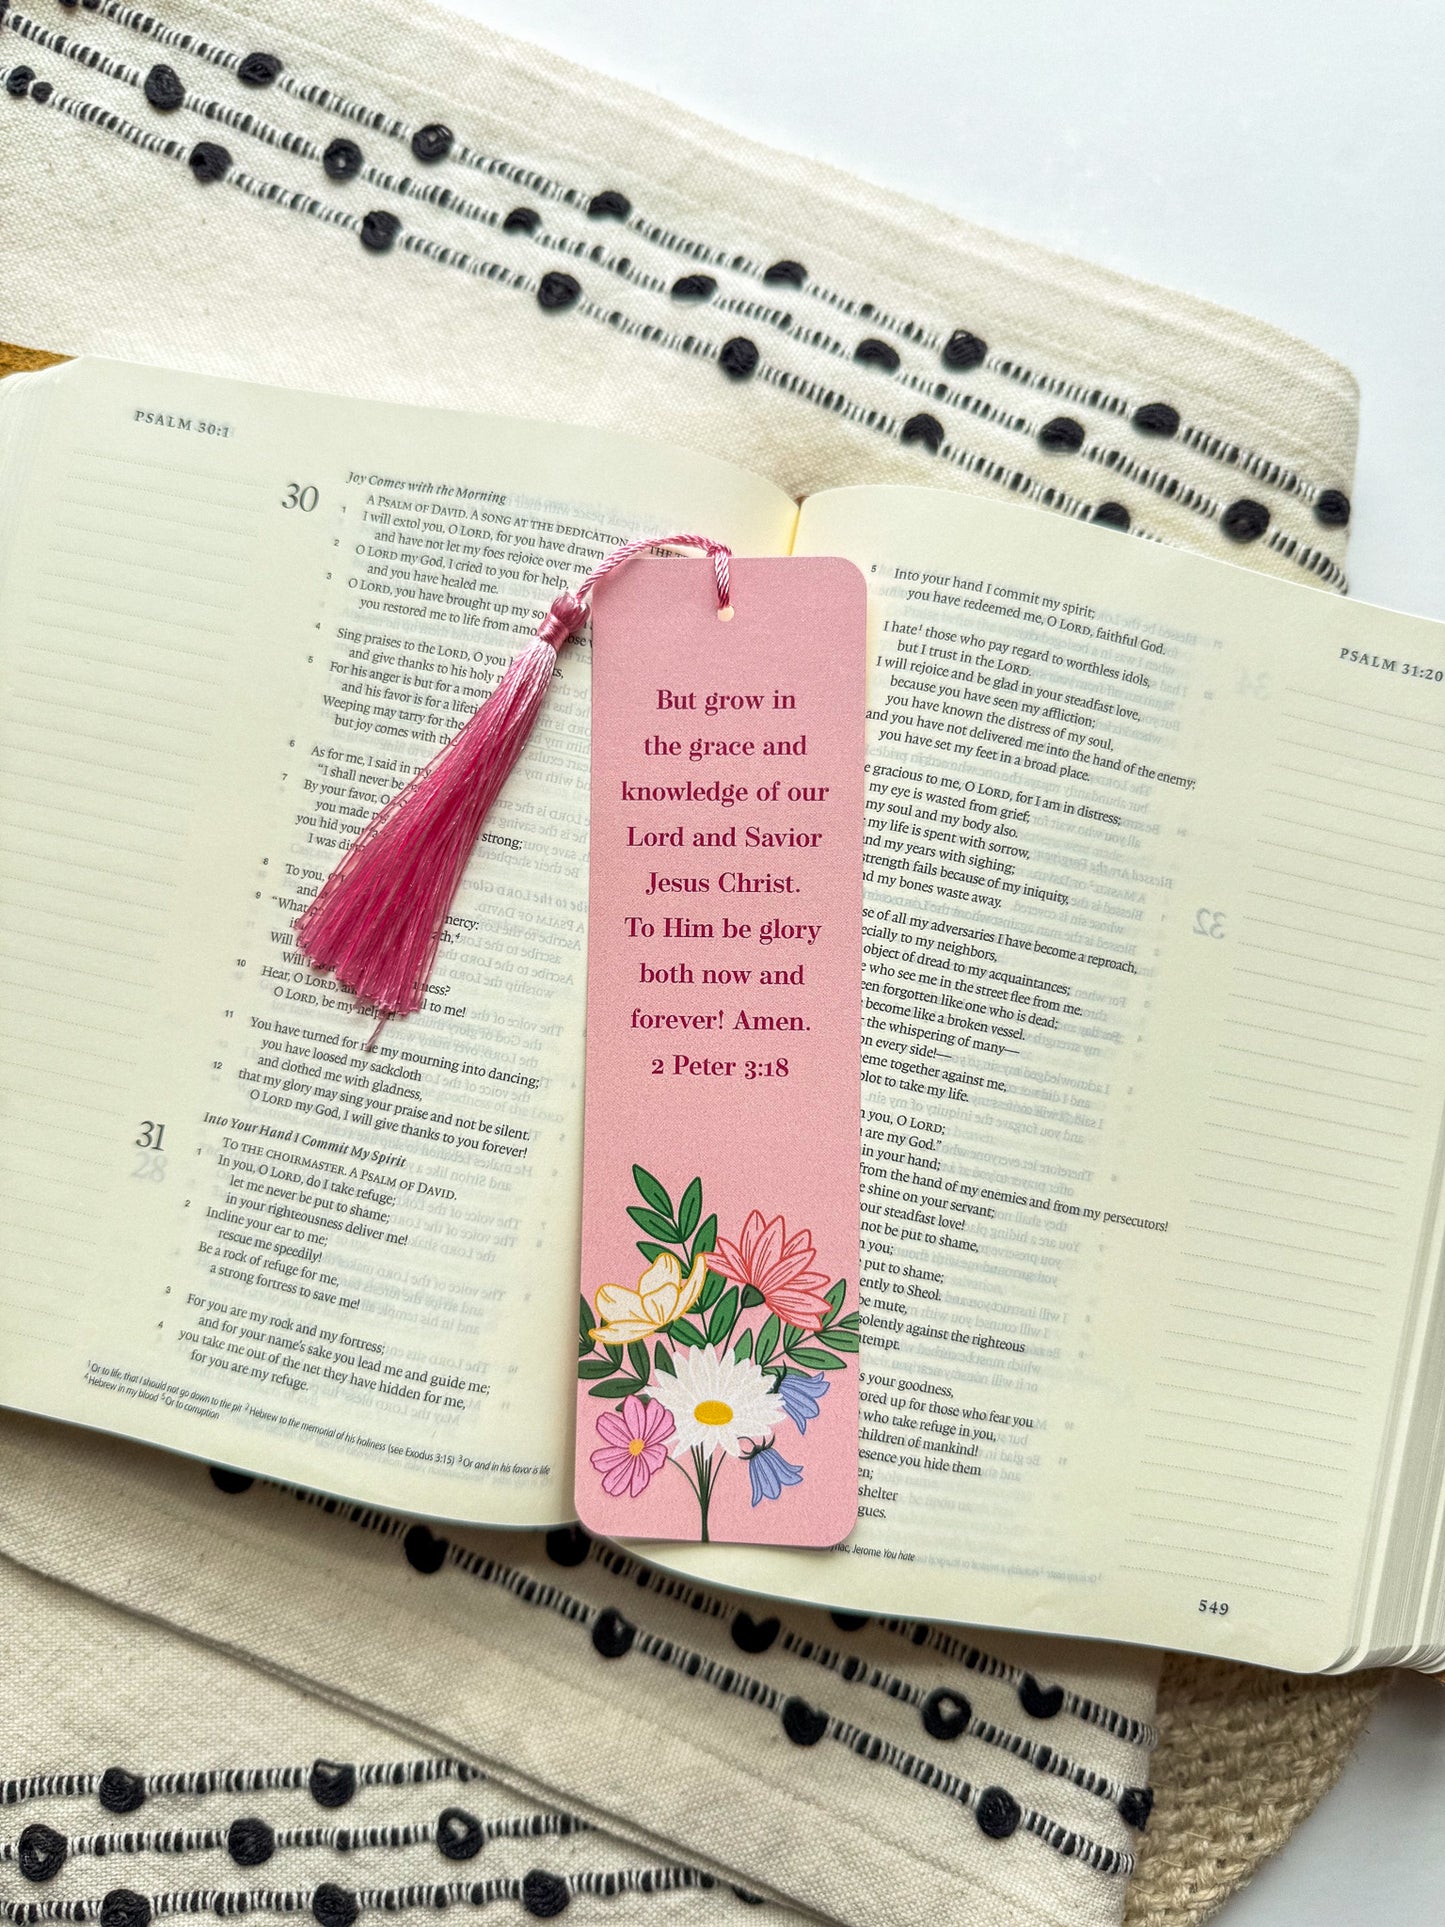 PSALM 30:1
30
Joy Comes with the Morning
1 A PSALM OF DAVID. A SONG AT THE DEDICATION THE
I will extol you, O LORD, for you have drawn
and have not let my foes rejoice over me
2 O LORD my God, I cried to you for help,
and you have healed me.
3 O LORD, you have brought up my
you restored me to life from
4 Sing praises to the LORD, O you
and give thanks to his holy
5 For his anger is but for a
and his favor is for a
Weeping may tarry for the
but joy comes with
6 As for me, I said in
"I shall never be
7 By your favor, O
you made strong;
you hid your
I was
8 To you,
and
9 "What
if
Will
Will
10 Hear, O LORD, to me!
O LORD, be my
11 You have turned for me my mourning into dancing;
you have loosed my sackcloth
and clothed me with gladness,
12 that my glory may sing your praise and not be silent.
O LORD my God, I will give thanks to you forever!
31
Into Your Hand I Commit My Spirit
TO THE CHOIRMASTER. A PSALM OF DAVID.
1 In you, O LORD, do I take refuge;
let me never be put to shame;
in your righteousness deliver me!
2 Incline your ear to me;
rescue me speedily!
Be a rock of refuge for me,
a strong fortress to save me!
3 For you are my rock and my fortress;
and for your name's sake you lead me and guide me;
4 you take me out of the net they have hidden for me,
for you are my refuge.
1 Or to life, that I should not go down to the pit 2 Hebrew to the memorial of his holiness (see Exodus 3:15) 3 Or and in his favor is life
4 Hebrew in my blood 5 Or to corruption
But grow in
the grace and
knowledge of our
Lord and Savior
Jesus Christ.
To Him be glory
both now and
forever! Amen.
2 Peter 3:18
PSALM 31:20
5 Into your hand I commit my spirit;
you have redeemed me, O LORD, faithful God.
I hate1 those who pay regard to worthless idols,
but I trust in the LORD.
I will rejoice and be glad in your steadfast love,
because you have seen my affliction;
you have known the distress of my soul,
and you have not delivered me into the hand of the enemy;
you have set my feet in a broad place.
gracious to me, O LORD, for I am in distress;
my eye is wasted from grief;
my soul and my body also.
my life is spent with sorrow,
and my years with sighing;
strength fails because of my iniquity,
and my bones waste away.
of all my adversaries I have become a reproach,
to my neighbors,
object of dread to my acquaintances;
who see me in the street flee from me.
forgotten like one who is dead;
become like a broken vessel.
the whispering of many—
on every side!—
together against me,
plot to take my life.
you, O LORD;
are my God."
in your hand;
from the hand of my enemies and from my persecutors!
shine on your servant;
your steadfast love!
not be put to shame,
you;
put to shame;
to Sheol.
be mute,
against the righteous
your goodness,
up for those who fear you
who take refuge in you,
children of mankind!
you hide them
shelter
Jerome You hate
549